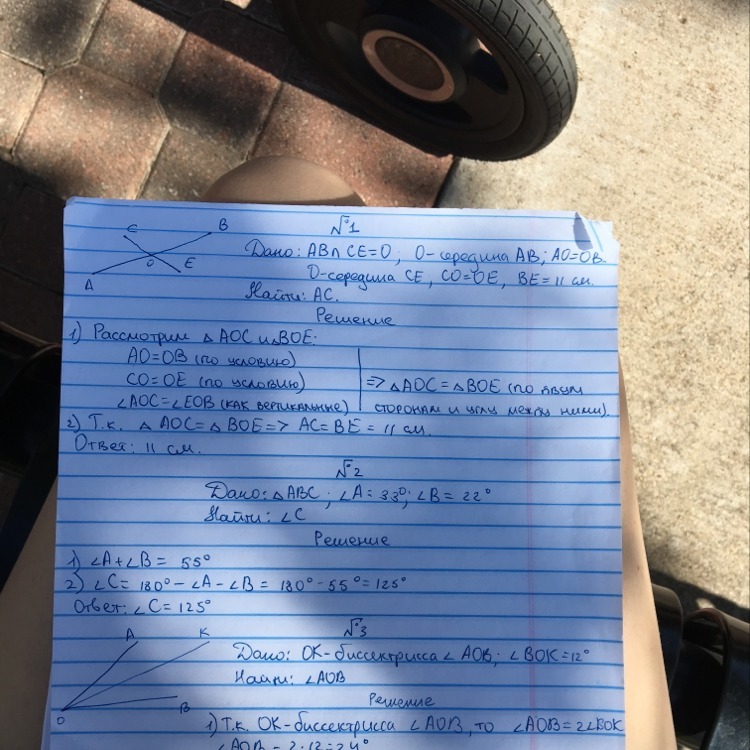 №1
C B
O E
A
Дано: AB∩CE=O; O-середина AB; AO=OB.
O-середина CE, CO=OE, BE=11 см.
Найти: AC.
Решение
1) Рассмотрим △AOC и △BOE:
AO=OB (по условию)
CO=OE (по условию) => △AOC=△BOE (по двум
∠AOC=∠EOB (как вертикальные) сторонам и углу между ними).
2) Т.к. △AOC=△BOE => AC=BE=11 см.
Ответ: 11 см.
№2
Дано: △ABC; ∠A=33°; ∠B=22°
Найти: ∠C
Решение
1) ∠A+∠B= 55°
2) ∠C= 180°-∠A-∠B = 180°-55°=125°
Ответ: ∠C=125°
№3
A K
Дано: OK-биссектрисса ∠AOB; ∠BOK=12°
Найти: ∠AOB
B
O
Решение
1) Т.к. OK-биссектрисса ∠AOB, то ∠AOB=2∠BOK
∠AOB=2·12=24°